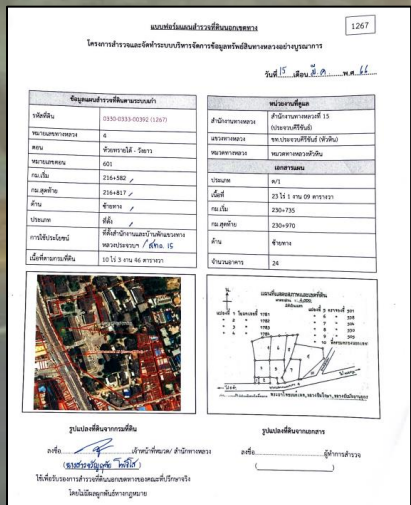 1267
แบบฟอร์มแผนสำรวจที่ดินนอกเขตทาง
โครงการสำรวจและจัดทำระบบบริหารจัดการข้อมูลทรัพย์สินทางหลวงอย่างบูรณาการ
วันที่ 15 เดือน มี.ค. พ.ศ. 66
ข้อมูลแผนสำรวจที่ดินตามระบบเก่า
รหัสที่ดิน 0330-0333-00392 (1267)
หมายเลขทางหลวง 4
ตอน ห้วยทรายใต้ - วังยาว
หมายเลขตอน 601
กม.เริ่ม 216+582
กม.สุดท้าย 216+817
ด้าน ซ้ายทาง
ประเภท ที่ตั้ง
การใช้ประโยชน์ ที่ตั้งสำนักงานและบ้านพักแขวงทาง
หลวงประจวบฯ / สทล. 15
เนื้อที่ตามกรมที่ดิน 10 ไร่ 3 งาน 46 ตารางวา
หน่วยงานที่ดูแล
สำนักงานทางหลวง สำนักงานทางหลวงที่ 15
(ประจวบคีรีขันธ์)
แขวงทางหลวง ขท.ประจวบคีรีขันธ์ (หัวหิน)
หมวดทางหลวง หมวดทางหลวงหัวหิน
เอกสารแผน
ประเภท ต/1
เนื้อที่ 23 ไร่ 1 งาน 09 ตารางวา
กม.เริ่ม 230+735
กม.สุดท้าย 230+970
ด้าน ซ้ายทาง
จำนวนอาคาร 24
รูปแปลงที่ดินจากกรมที่ดิน
ลงชื่อ เจ้าหน้าที่หมวด/ สำนักทางหลวง
ใช้เพื่อรับรองการสำรวจที่ดินนอกเขตทางของคณะที่ปรึกษาจริง
โดยไม่มีผลผูกพันธ์ทางกฎหมาย
แผนที่แสดงสภาพและเขตที่ดิน
รูปแปลงที่ดินจากเอกสาร
ลงชื่อ ผู้ทำการสำรวจ